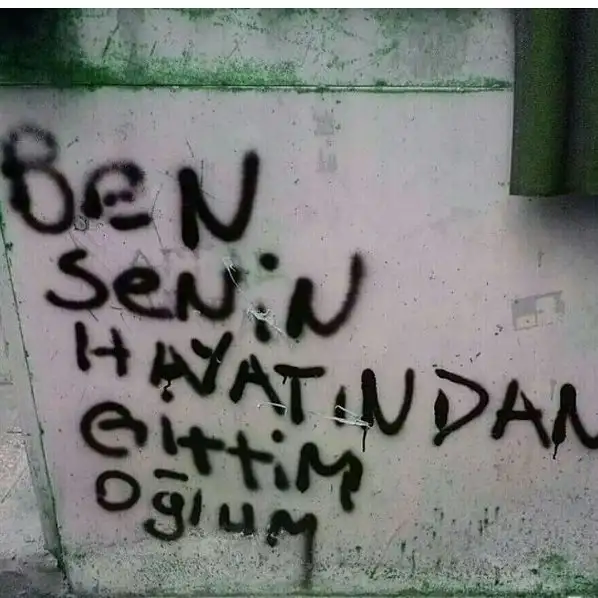 BeN
SeNiN
HAYATıNDAN
GittiM
Oğlum